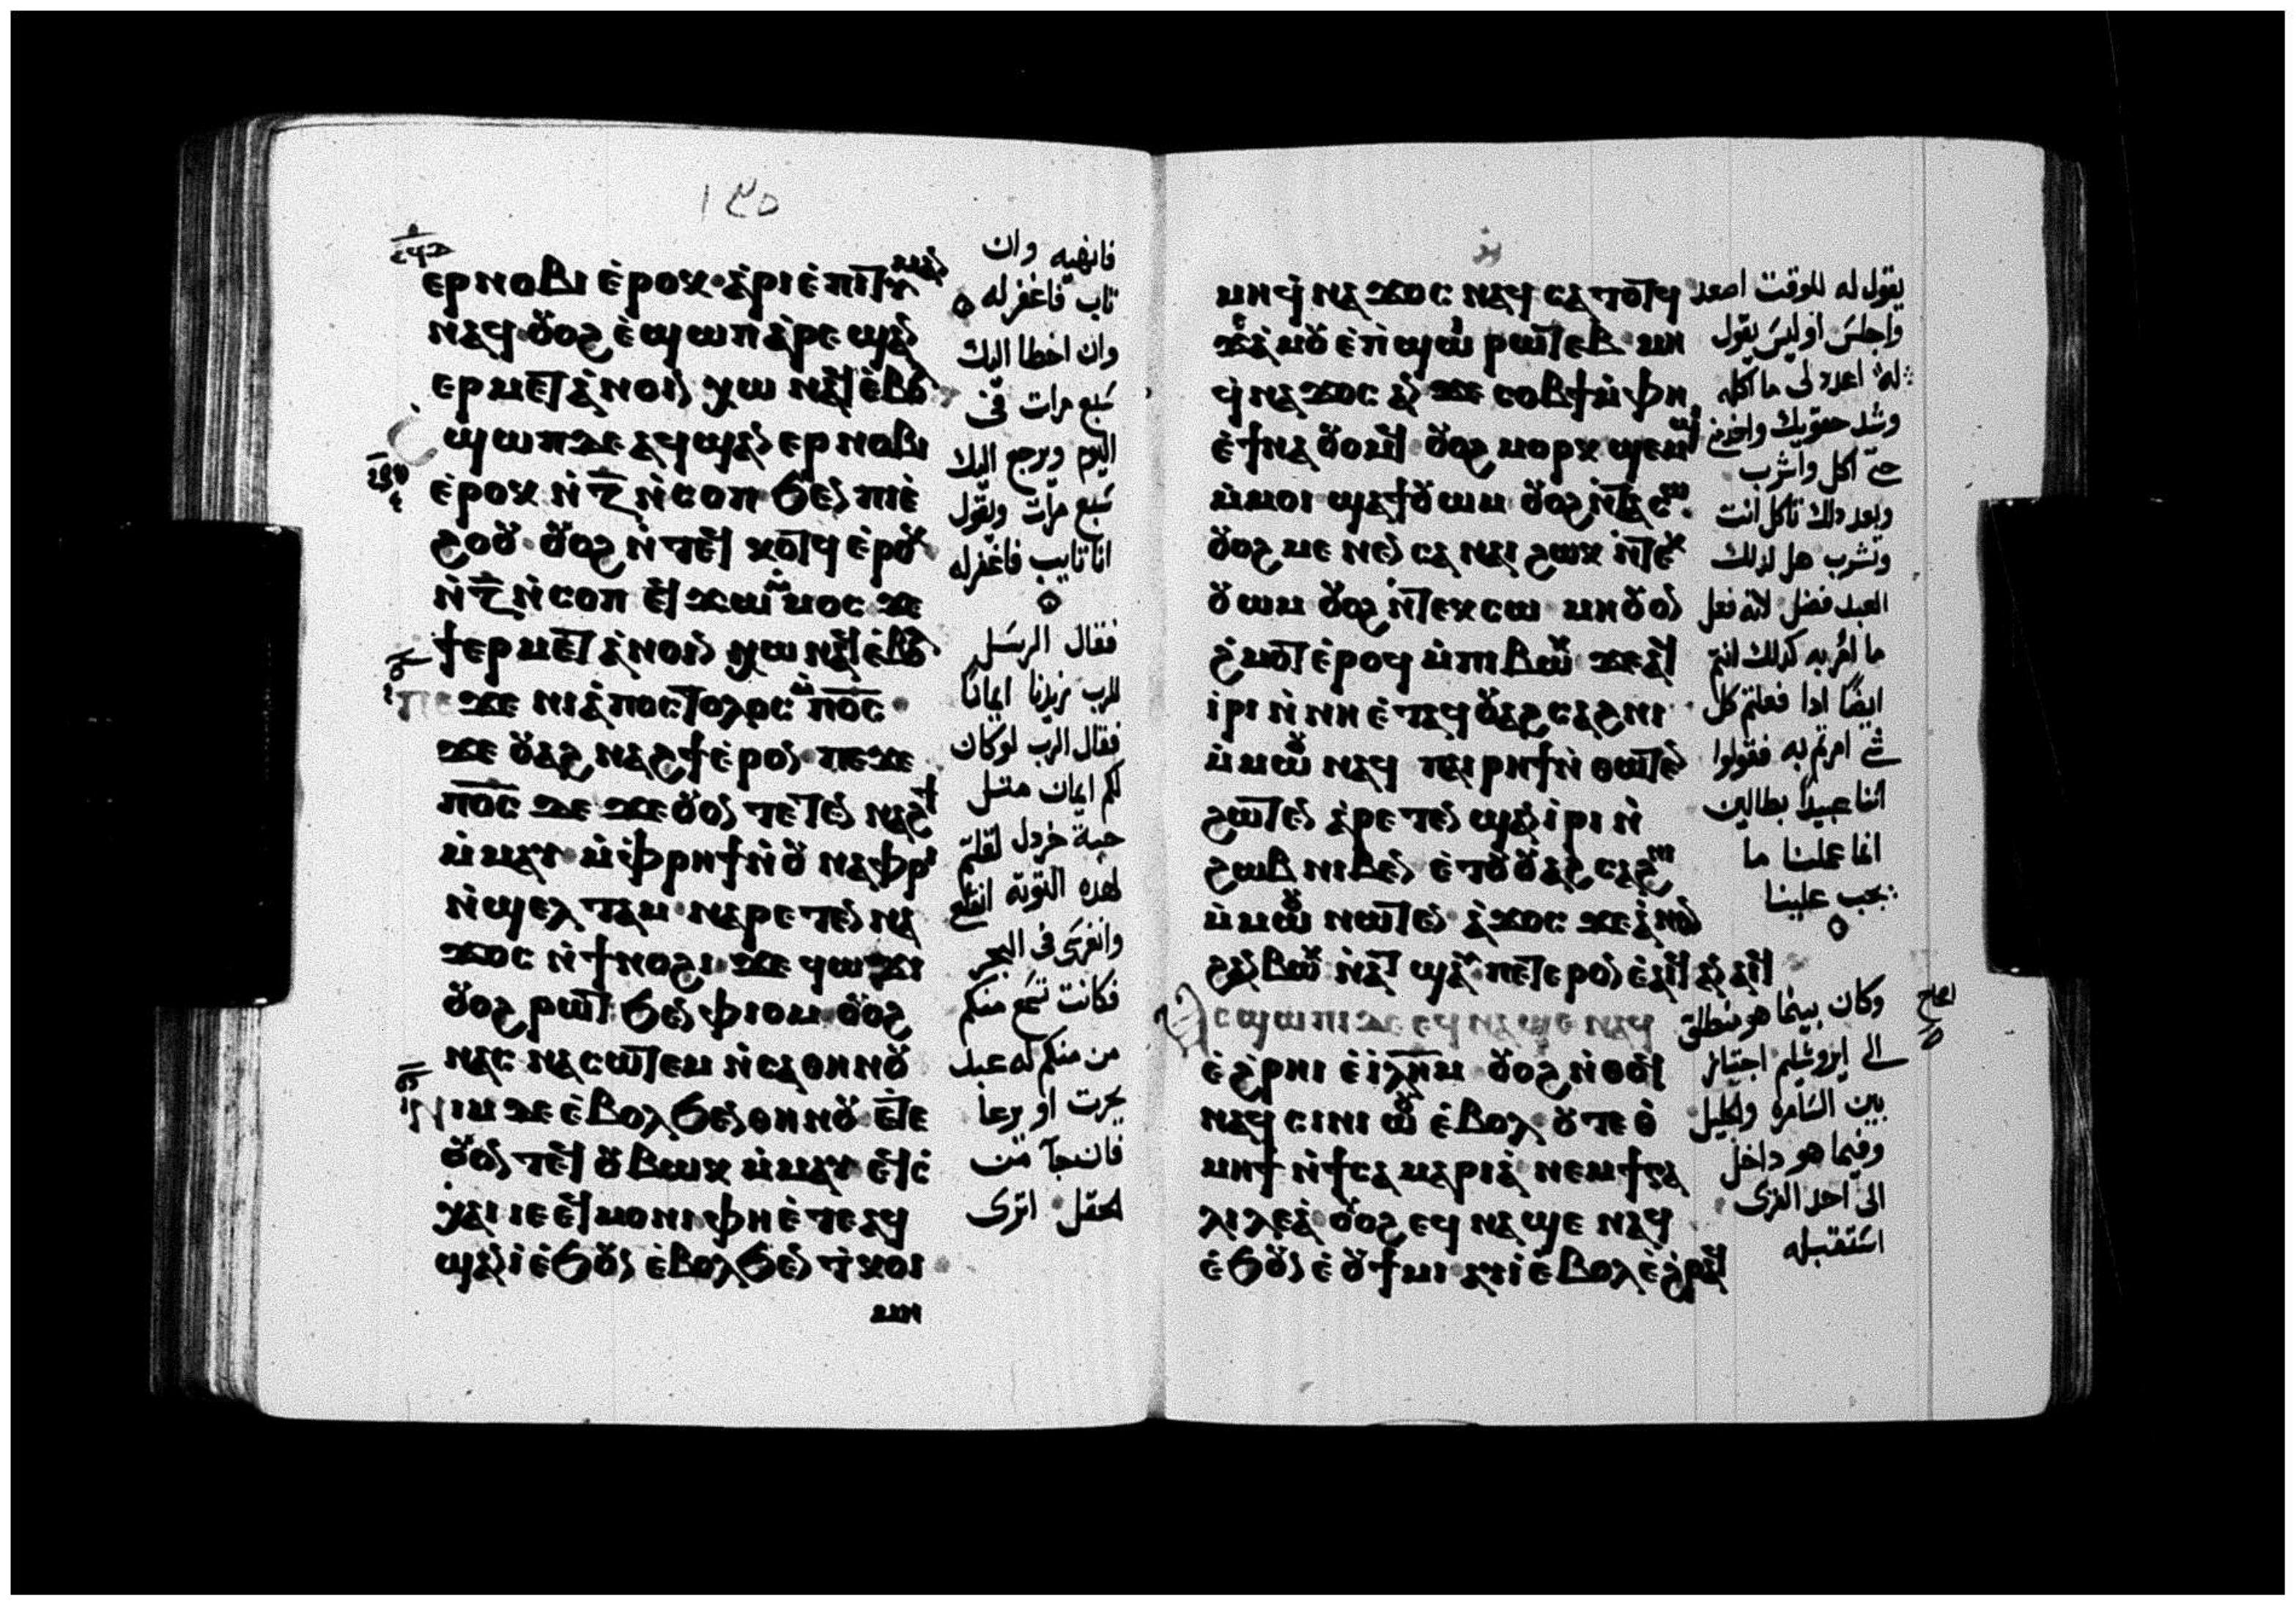 ١٤٥
ⲉⲣⲛⲟⲃⲓ ⲉ̀ⲣⲟⲕ ⲁ̀ⲣⲓⲉ̀ⲡⲓⲧⲓⲙⲁⲛ
ⲛⲁϥ ⲟⲩⲟϩ ⲉ̀ϣⲱⲡ ⲁ̀ⲣⲉ ϣⲁⲛ
ⲉⲣⲙⲉⲧⲁ̀ⲛⲟⲓⲛ ⲭⲱ ⲛⲁϥ ⲉ̀ⲃⲟⲗ
ϣⲱⲡ ⲇⲉ ⲁϥϣⲁⲛ ⲉⲣⲛⲟⲃⲓ
ⲉ̀ⲣⲟⲕ ⲛ̀ⲍ̅ ⲛ̀ⲥⲟⲡ ϧⲉⲛ ⲡⲓⲉ̀
ϩⲟⲟⲩ ⲟⲩⲟϩ ⲛ̀ⲧⲉϥ ⲕⲟⲧϥ ⲉ̀ⲣⲟⲕ
ⲛ̀ⲍ̅ ⲛ̀ⲥⲟⲡ ⲉϥϫⲱ ⲙ̀ⲙⲟⲥ ϫⲉ
ϯⲉⲣⲙⲉⲧⲁ̀ⲛⲟⲓⲛ ⲭⲱ ⲛⲁϥ ⲉ̀ⲃⲟⲗ
ⲡⲉϫⲉ ⲛⲓⲁ̀ⲡⲟⲥⲧⲟⲗⲟⲥ ⲙ̀ⲡⲟ̅ⲥ̅
ϫⲉ ⲟⲩⲁϩ ⲛⲁϩϯ ⲉ̀ⲣⲟⲛ ⲡⲉϫⲉ
ⲡⲟ̅ⲥ̅ ⲇⲉ ϫⲉ ⲟⲩⲟⲛ ⲧⲉⲧⲉⲛ ⲛⲁϩϯ
ⲙ̀ⲙⲁⲩ ⲙ̀ⲫ̀ⲣⲏϯ ⲛ̀ⲟⲩ ⲛⲁⲫⲣⲓ
ⲛ̀ϣⲉⲗⲧⲁⲙ ⲛⲁⲣⲉⲧⲉⲛ ⲛⲁ
ϫⲟⲥ ⲛ̀ϯⲛⲟⲩϩⲓ ϫⲉ ϥⲱϫⲓ
ⲟⲩⲟϩ ⲣⲱⲧ ϧⲉⲛ ⲫⲓⲟⲙ ⲟⲩⲟϩ
ⲛⲁⲥ ⲛⲁⲥⲱⲧⲉⲙ ⲛ̀ⲥⲁ ⲑⲏⲛⲟⲩ
ⲛⲓⲙ ⲇⲉ ⲉ̀ⲃⲟⲗ ϧⲉⲛ ⲑⲏⲛⲟⲩ ⲉⲧⲉ
ⲟⲩⲟⲛ ⲧⲉϥ ⲟⲩⲃⲱⲕ ⲙ̀ⲙⲁⲩ ⲉϥⲥ̀
ⲭⲁⲓ ⲓⲉ ⲉϥⲙⲟⲛⲓ ⲫⲏ ⲉ̀ⲧⲉⲁϥ
ϣⲁⲛⲓ̀ ⲉ̀ϧⲟⲩⲛ ⲉ̀ⲃⲟⲗ ϧⲉⲛ ⲧ̀ⲕⲟⲓ
ⲙⲏ
فانهيه وان
تاب فاغفر له
وان اخطا اليك
سبع مرات في
اليوم ويرجع اليك
سبع مرات ويقول
انا تايب فاغفر له
فقال الرسل
للرب زيدنا ايمانا
فقال الرب لو كان
لكم ايمان مثل
حبة خردل لقلتم
لهذه التوته انقلع
وانغرسى فى البحر
فكانت تسمع منكم
من منكم له عبد
يحرث او يرعا
فان جآ من
الحقل اترى
ⲙⲏϥ̀ⲛⲁ ϫⲟⲥ ⲛⲁϥ ⲥⲁⲧⲟⲧϥ
ϫⲉ ⲁ̀ⲙⲟⲩ ⲉ̀ⲡ̀ϣⲱⲓ ⲣⲱⲧⲉⲃ ⲙⲏ
ϥ̀ⲛⲁ ϫⲟⲥ ⲁⲛ ϫⲉ ⲥⲟⲃϯ ⲙ̀ⲫⲏ
ⲉ̀ϯⲛⲁ ⲟⲩⲟⲙϥ ⲟⲩⲟϩ ⲙⲟⲣⲕ ϣⲉⲙϣⲓ
ⲙ̀ⲙⲟⲓ ϣⲁϯⲟⲩⲱⲙ ⲟⲩⲟϩ ⲛ̀ⲧⲁⲥⲱ
ⲟⲩⲟϩ ⲙⲉⲛⲉⲛⲥⲁ ⲛⲁⲓ ϩⲱⲕ ⲛ̀ⲧⲉⲕ
ⲟⲩⲱⲙ ⲟⲩⲟϩ ⲛ̀ⲧⲉⲕⲥⲱ ⲙⲏ ⲟⲩⲟⲛ
ϩ̀ⲙⲟⲧ ⲉ̀ⲣⲟϥ ⲙ̀ⲡⲓⲃⲱⲕ ϫⲉ ⲁϥ
ⲓⲣⲓ ⲛ̀ⲛⲏ ⲉ̀ⲧⲁϥ ⲟⲩⲁϩⲥⲁϩⲛⲓ
ⲙ̀ⲙⲱⲟⲩ ⲛⲁϥ ⲡⲁⲓⲣⲏϯ ⲛ̀ⲑⲱⲧⲉⲛ
ϩⲱⲧⲉⲛ ⲁ̀ⲣⲉⲧⲉⲛ ϣⲁⲛ ⲓ̀ⲣⲓ ⲛ̀
ϩⲱⲃ ⲛⲓⲃⲉⲛ ⲉ̀ⲧⲟⲩ ⲟⲩⲁϩⲥⲁϩⲛⲓ
ⲙ̀ⲙⲱⲟⲩ ⲛⲱⲧⲉⲛ ⲁ̀ϫⲟⲥ ϫⲉ ⲁ̀ⲛⲟⲛ
ϩⲁⲛⲃⲱⲕ ⲛ̀ⲁⲧ ϣⲁⲩ ⲡⲉⲧⲉⲣⲟⲛ ⲉ̀ⲁⲓϥ ⲁⲛⲁⲓϥ
ⲁⲥϣⲱⲡⲓ ⲇⲉ ⲉϥⲛⲁϣⲉ ⲛⲁϥ
ⲉ̀ϩ̀ⲣⲏⲓ ⲉ̀ⲓ̅ⲗ̅ⲏ̅ⲙ̅ ⲟⲩⲟϩ ⲛ̀ⲑⲟϥ
ⲛⲁϥⲥⲓⲛⲓⲱⲟⲩ ⲉ̀ⲃⲟⲗ ⲟⲩⲧⲉ ⲑ̀
ⲙⲏϯ ⲛ̀ϯⲥⲁⲙⲁⲣⲓⲁ̀ ⲛⲉⲙ ϯⲅⲁ
ⲗⲓⲗⲉⲁ̀ ⲟⲩⲟϩ ⲉϥⲛⲁϣⲉ ⲛⲁϥ
ⲉ̀ϧⲟⲩⲛ ⲉ̀ⲟⲩϯⲙⲓ ⲁⲩⲓ̀ ⲉ̀ⲃⲟⲗ ⲉ̀ϩ̀ⲣⲁϥ
يقول له للوقت اصعد
واجلس اوليس يقول
له اعدد لى ما آكله
وشد حقويك واخدمني
حتى آكل واشرب
وبعد ذلك تاكل انت
وتشرب هل لذلك
العبد فضل لانه فعل
ما امر به كذلك انتم
ايضًا اذا فعلتم كل
شي امرتم به فقولوا
اننا عبيدًا بطالين
انما عملنا ما
يجب علينا
وكان بينما هو منطلق
الى ايروشليم اجتاز
بين السامره والجليل
وفيما هو داخل
الى احد القرى
استقبله